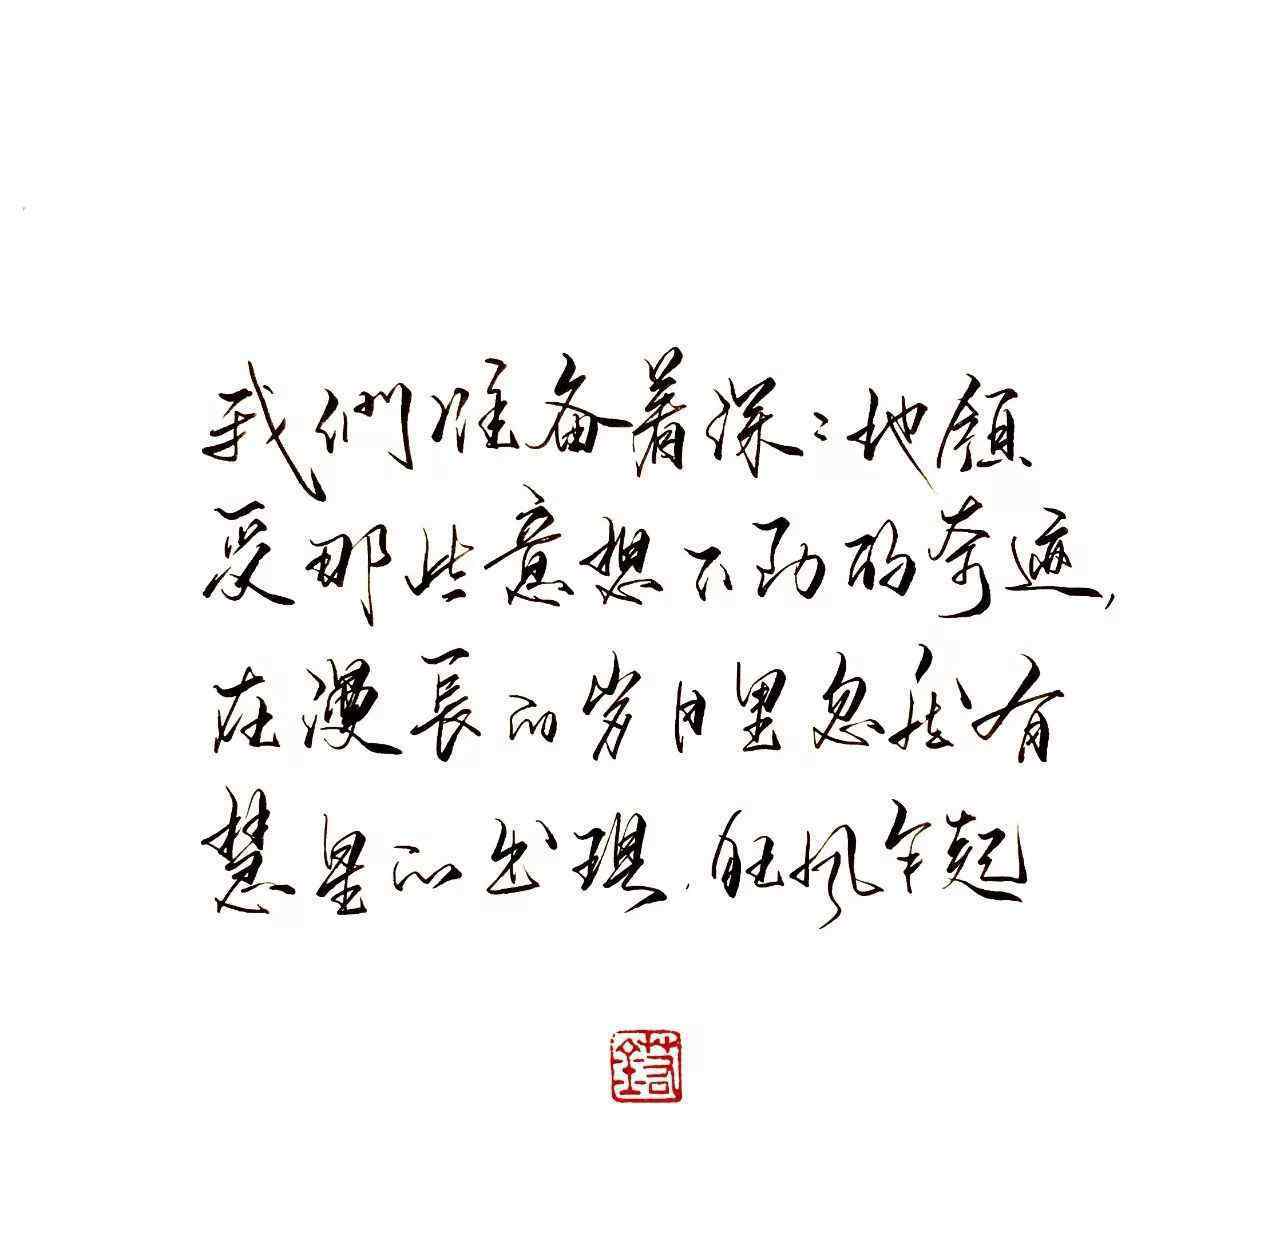 我們准备着深〻地領
受那些意想不到的奇迹,
在漫長的岁月里忽然有
慧星的出现,狂风乍起